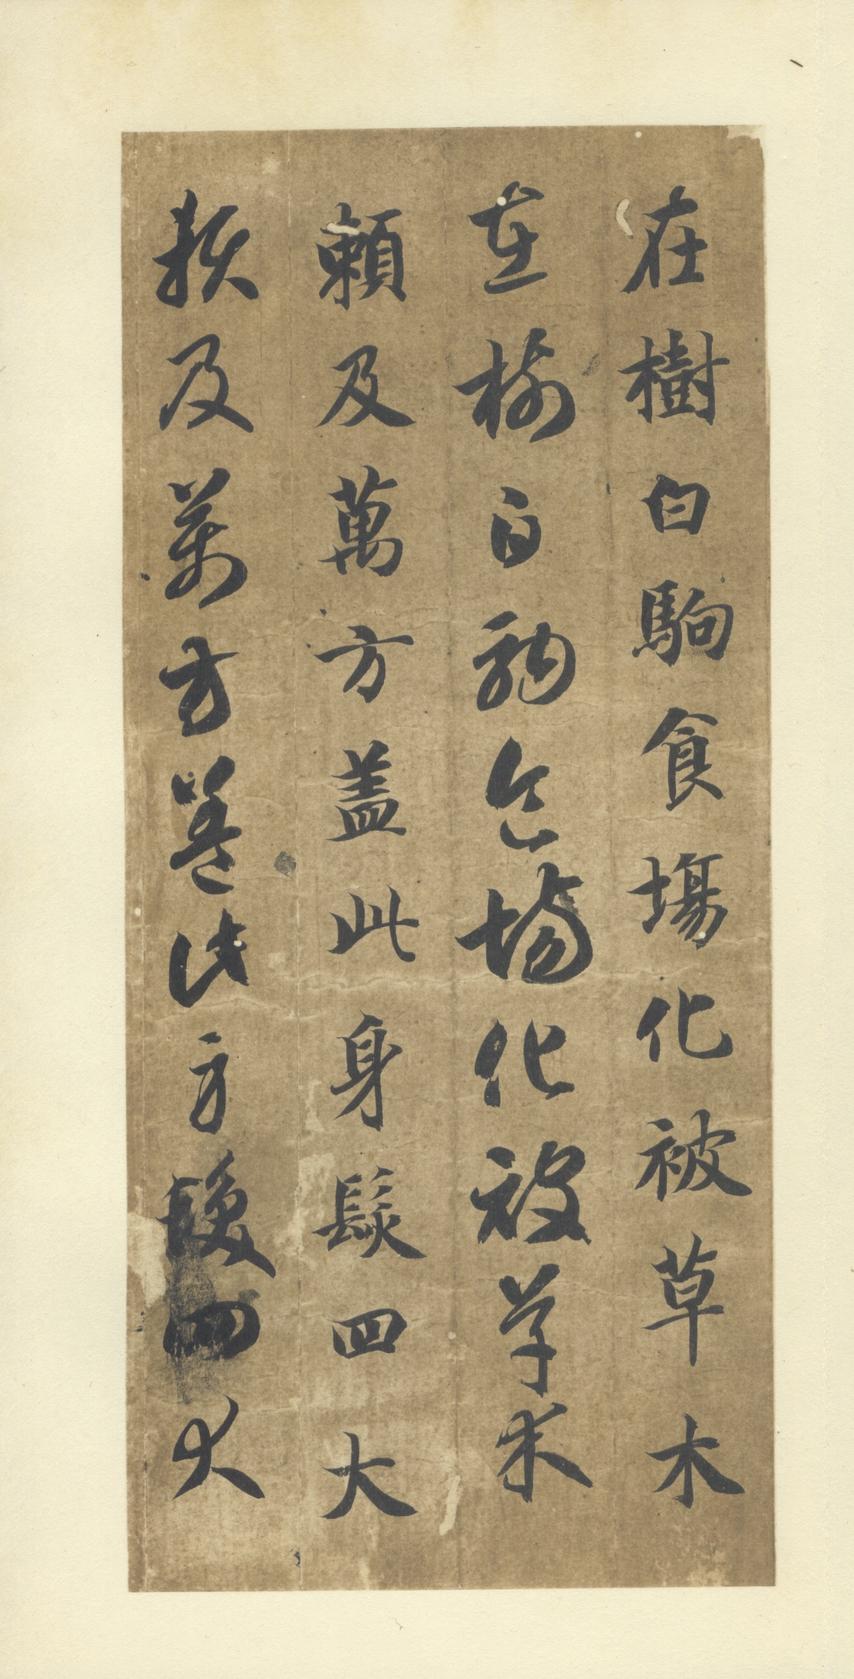 在樹白駒食塲化被草木
在樹白駒食場化被草木
賴及萬方盖此身髮四大
賴及萬方蓋此身髮四大